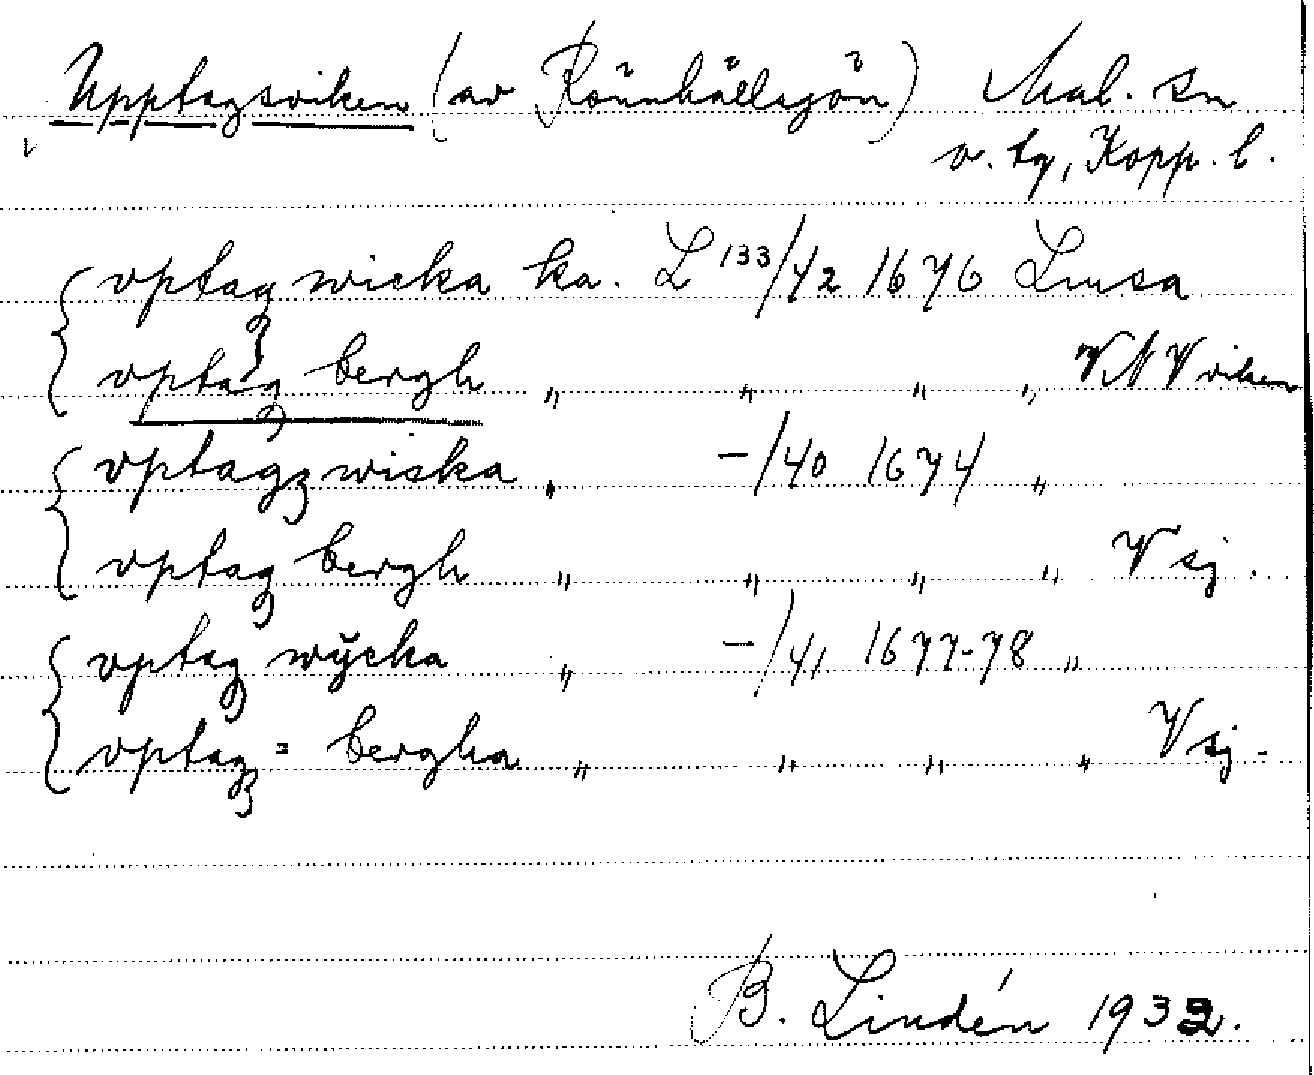 Upptagsviken (av Rönnhällsjön) Mal. sn
v. tg, Kopp. l.
vptagz wicka ka. L 133/42 1676 Lima
vptagz bergh " " " " VNV viken
vptagz wicka " -/40 1674 "
vptagz bergh " " " " V sj.
vptagz wÿcka " -/41 1677-78 "
vptagz = bergha " " " " V sj.
B. Lindén 1932.